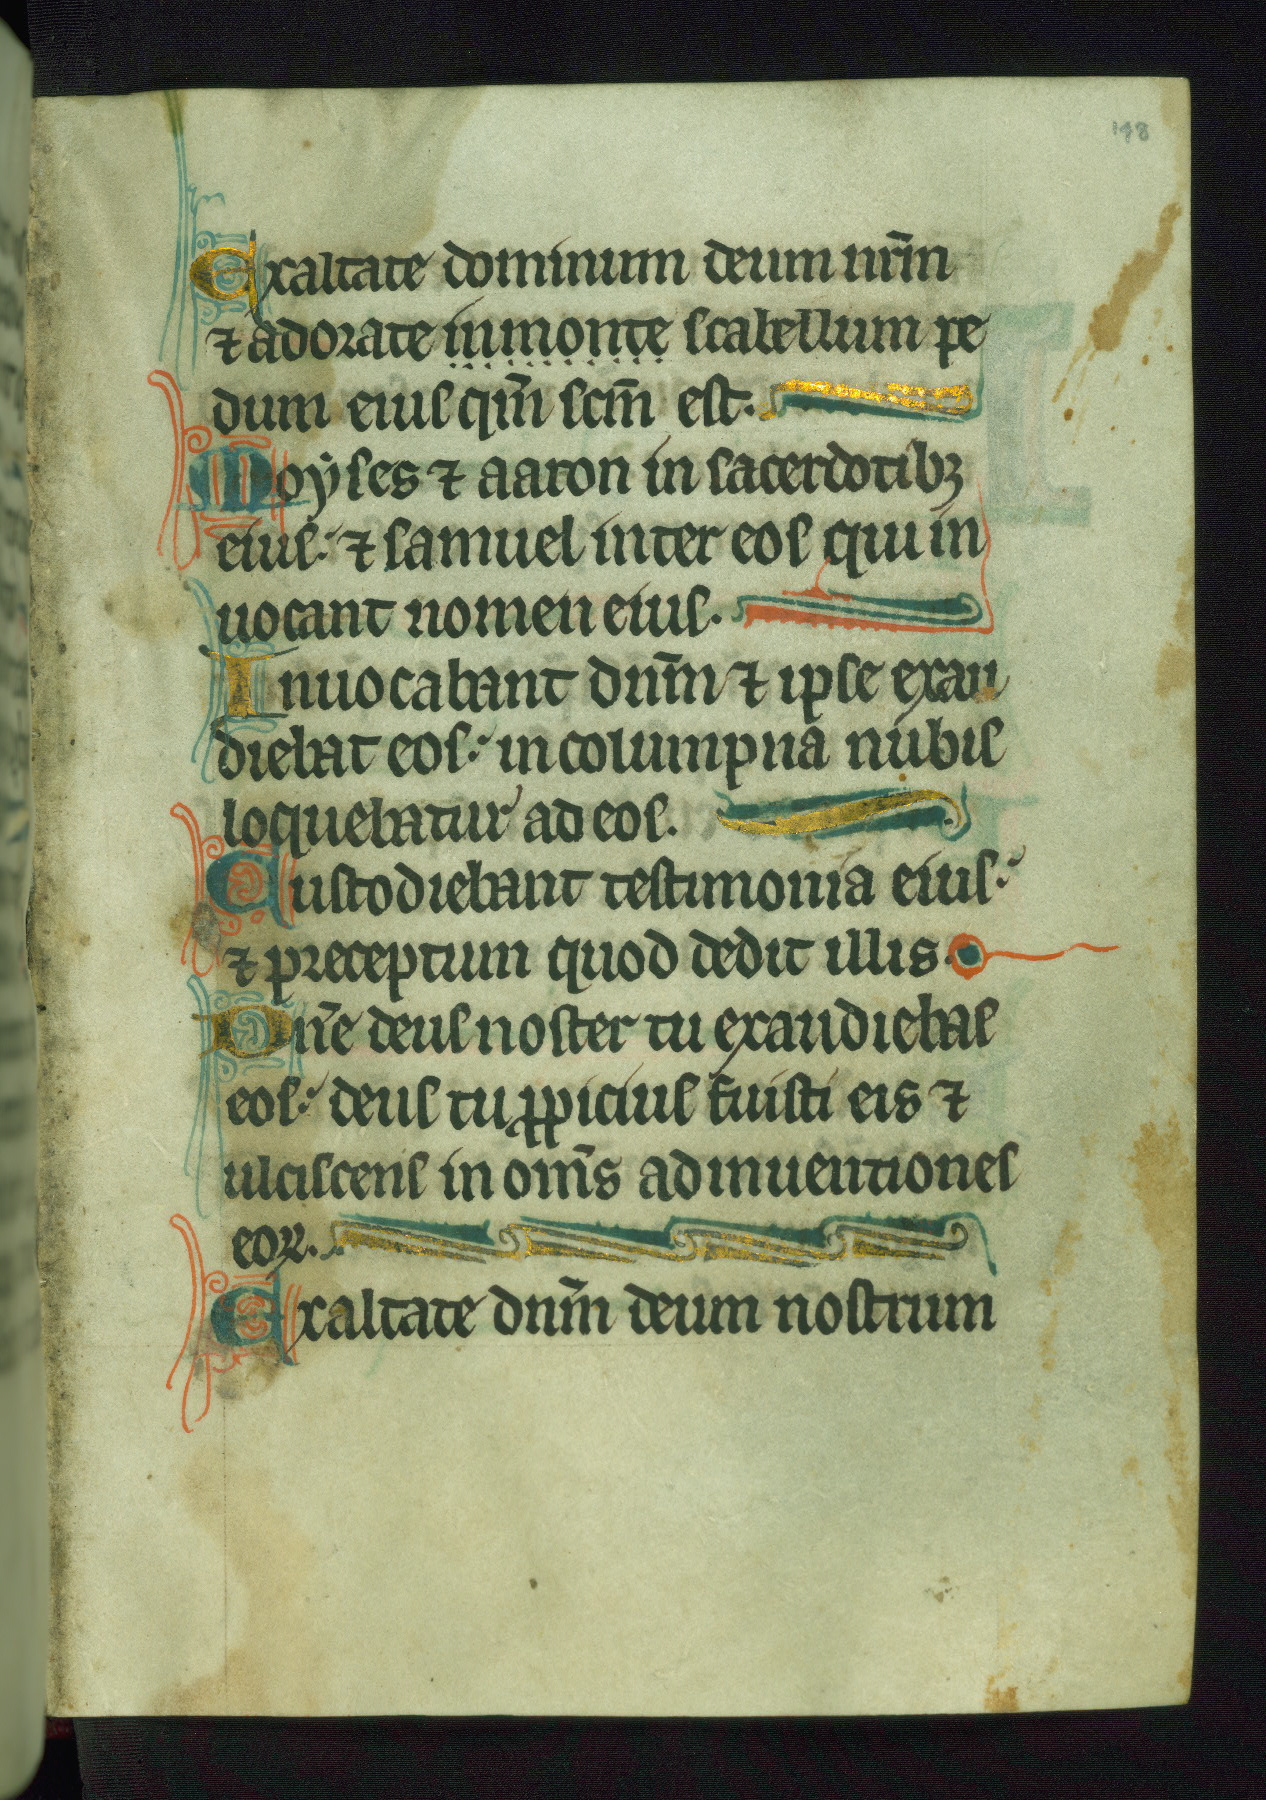 148
Exaltate dominum deum nr̄m
⁊ adorate in monte scabellum pe
dum eius qm̄ scm̄ est.
Moẏses ⁊ aaron in sacerdotibꝫ
eius: ⁊ samuel inter eos qui in
uocant nomen eius.
Inuocabant dnm̄ ⁊ ipse exau
diebat eos: in columpna nubis
loquebatur ad eos.
Custodiebant testimonia eius:
⁊ preceptum quod dedit illis.
Dn̄e deus noster tu exaudiebas
eos: deus tu ꝓpicius fuisti eis ⁊
ulciscens in om̄s adinuentiones
eoꝝ.
Exaltate dnm̄ deum nostrum